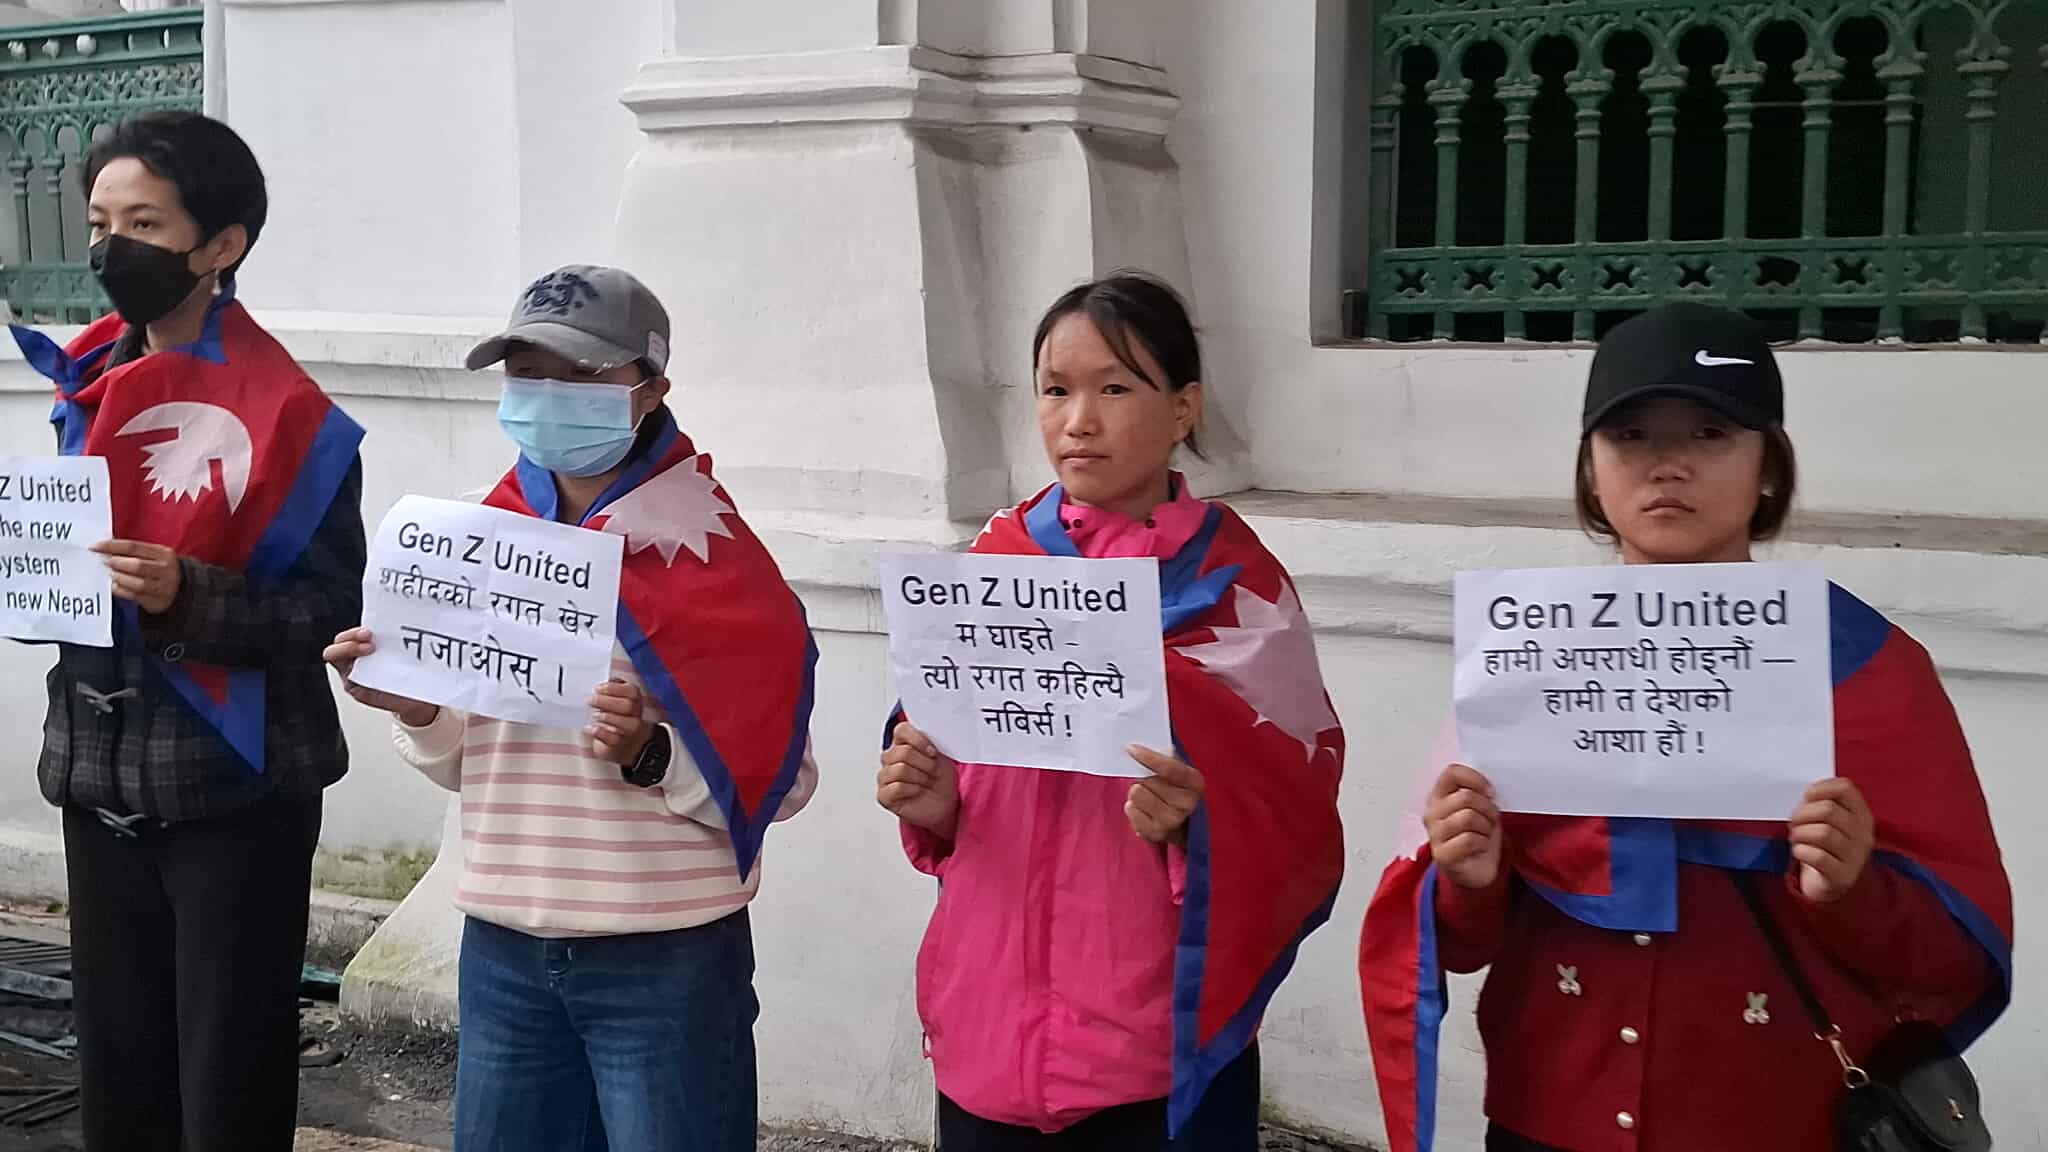 Z United
he new
ystem
new Nepal
Gen Z United
शहीदको रगत खेर
नजाओस् ।
Gen Z United
म घाइते -
त्यो रगत कहिल्यै
नबिर्स !
Gen Z United
हामी अपराधी होइनौं —
हामी त देशको
आशा हौं !